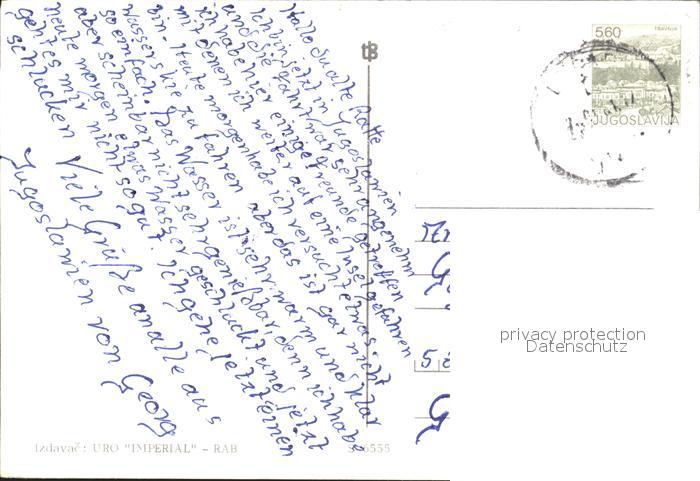 Hallo du alte Ratte
Ich bin jetzt in Jugoslawien
und die Fahrt war sehr angenehm
ich habe hier einige Freunde getroffen
mit denen ich weiter auf eine Insel gefahren
bin. Heute morgen habe ich versucht etwas
Wasserskie zu fahren aber das ist gar nicht
so einfach. Das Wasser ist sehr warm und klar
aber scheinbar nicht sehr genießbar, denn ich habe
heute morgen etwas Wasser geschluckt und jetzt
geht es mir nicht so gut. Ich gehe jetzt einen
schlucken Viele Grüße an alle aus
Jugoslawien von Georg
tB
560
TRAVNIK
JUGOSLAVIJA
privacy protection
Datenschutz
Izdavač: URO "IMPERIAL" - RAB
6555